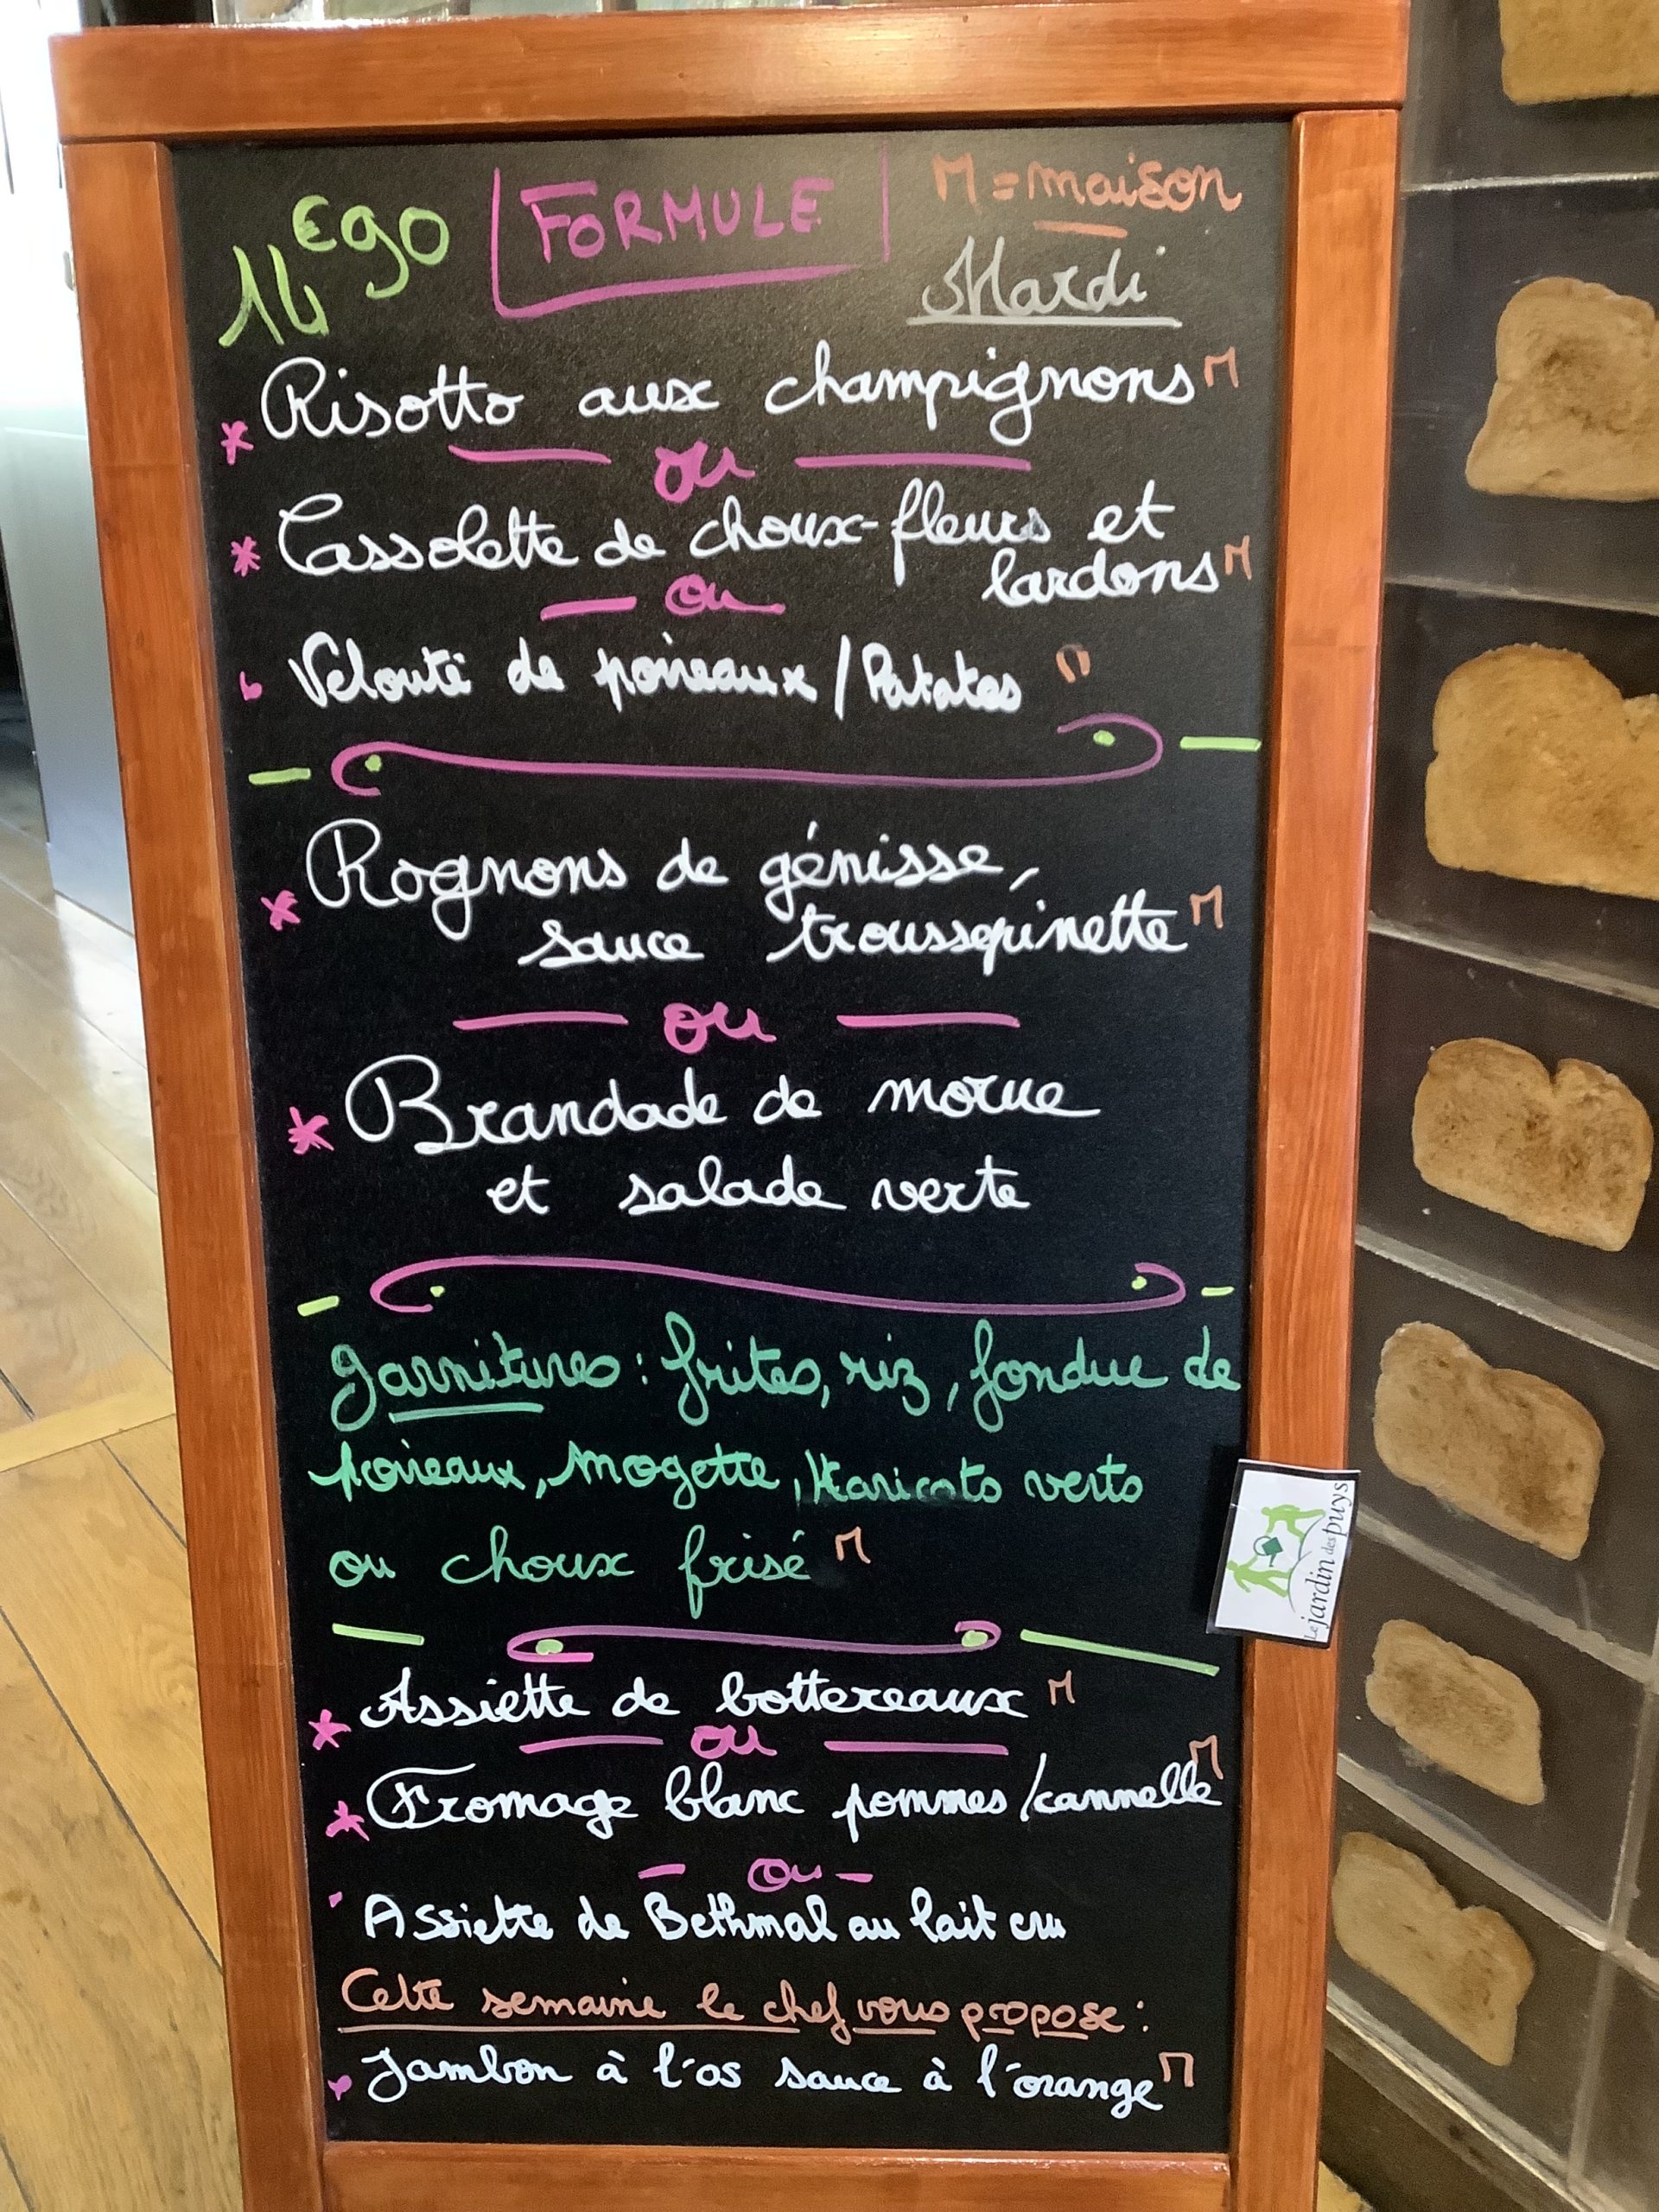 14€90 FORMULE M = maison
Mardi
* Risotto aux champignons M
ou
* Cassolette de choux-fleurs et
lardons M
ou
Velouté de poireaux / Patates M
* Rognons de génisse,
sauce trousspinette M
ou
* Brandade de morue
et salade verte
garnitures : frites, riz, fondue de
poireaux, mogette, Haricots verts
ou choux frisé M
* Assiette de bottereaux M
ou
* Fromage blanc pommes/cannelle M
ou
Assiette de Bethmal au lait cru
Cette semaine le chef vous propose :
Jambon à l'os sauce à l'orange M
Le jardin des puys